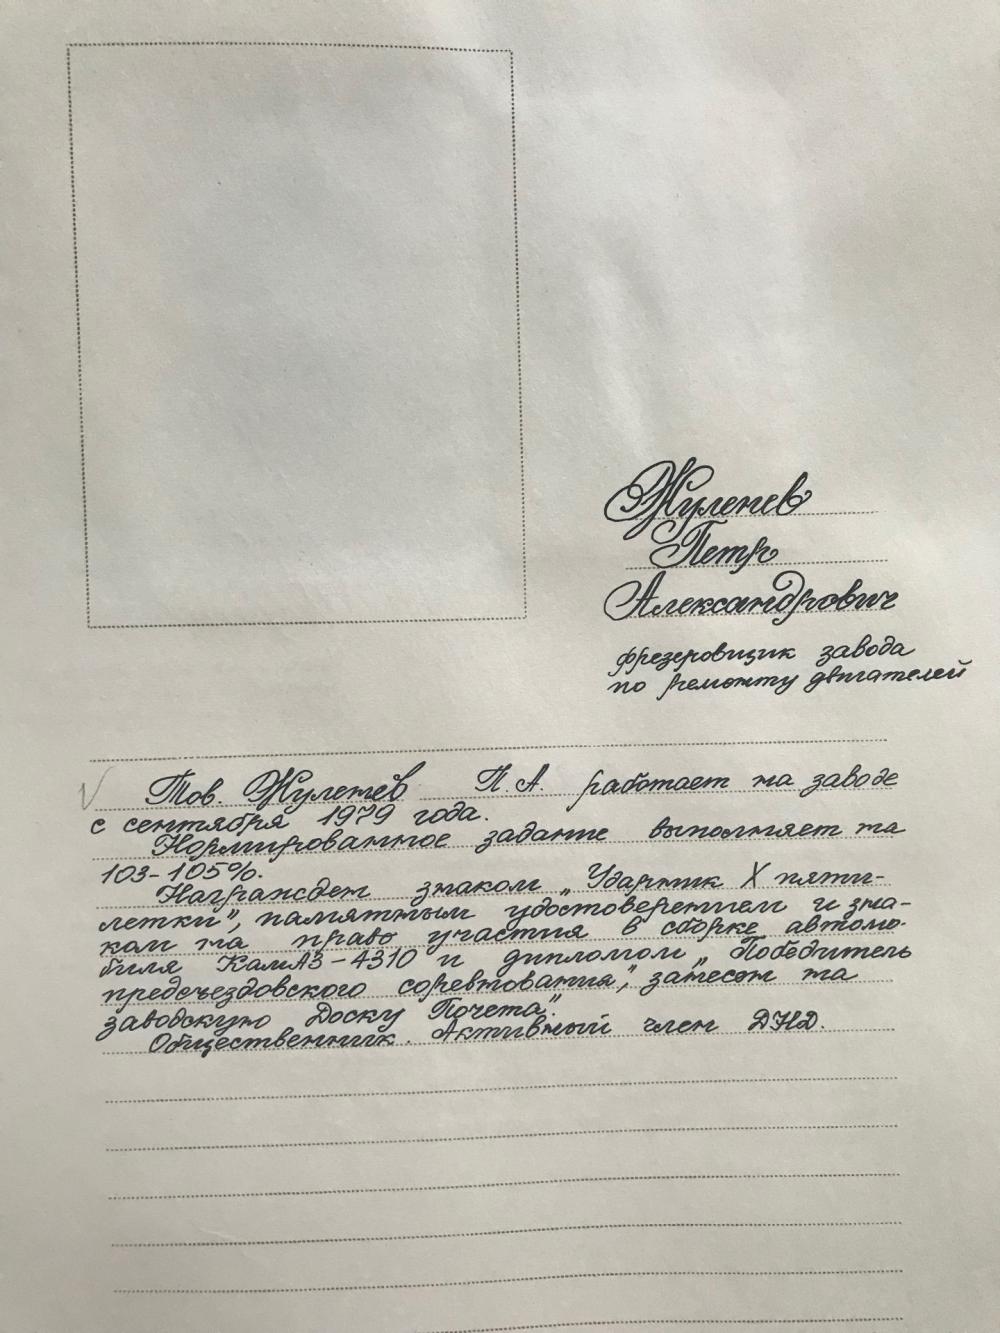 Жуленев
Петр
Александрович
фрезеровщик завода
по ремонту двигателей
Тов. Жуленёв П.А. работает на заводе
с сентября 1979 года.
Нормированное задание выполняет на
103-105%.
Награжден знаком „Ударник X пяти-
летки", памятным удостоверением и зна-
ком на право участия в сборке автомо-
биля КамАЗ-4310 и дипломом „Победитель
предсъездовского соревнования", занесен на
заводскую Доску Почета".
Общественник. Активный член ДНД.